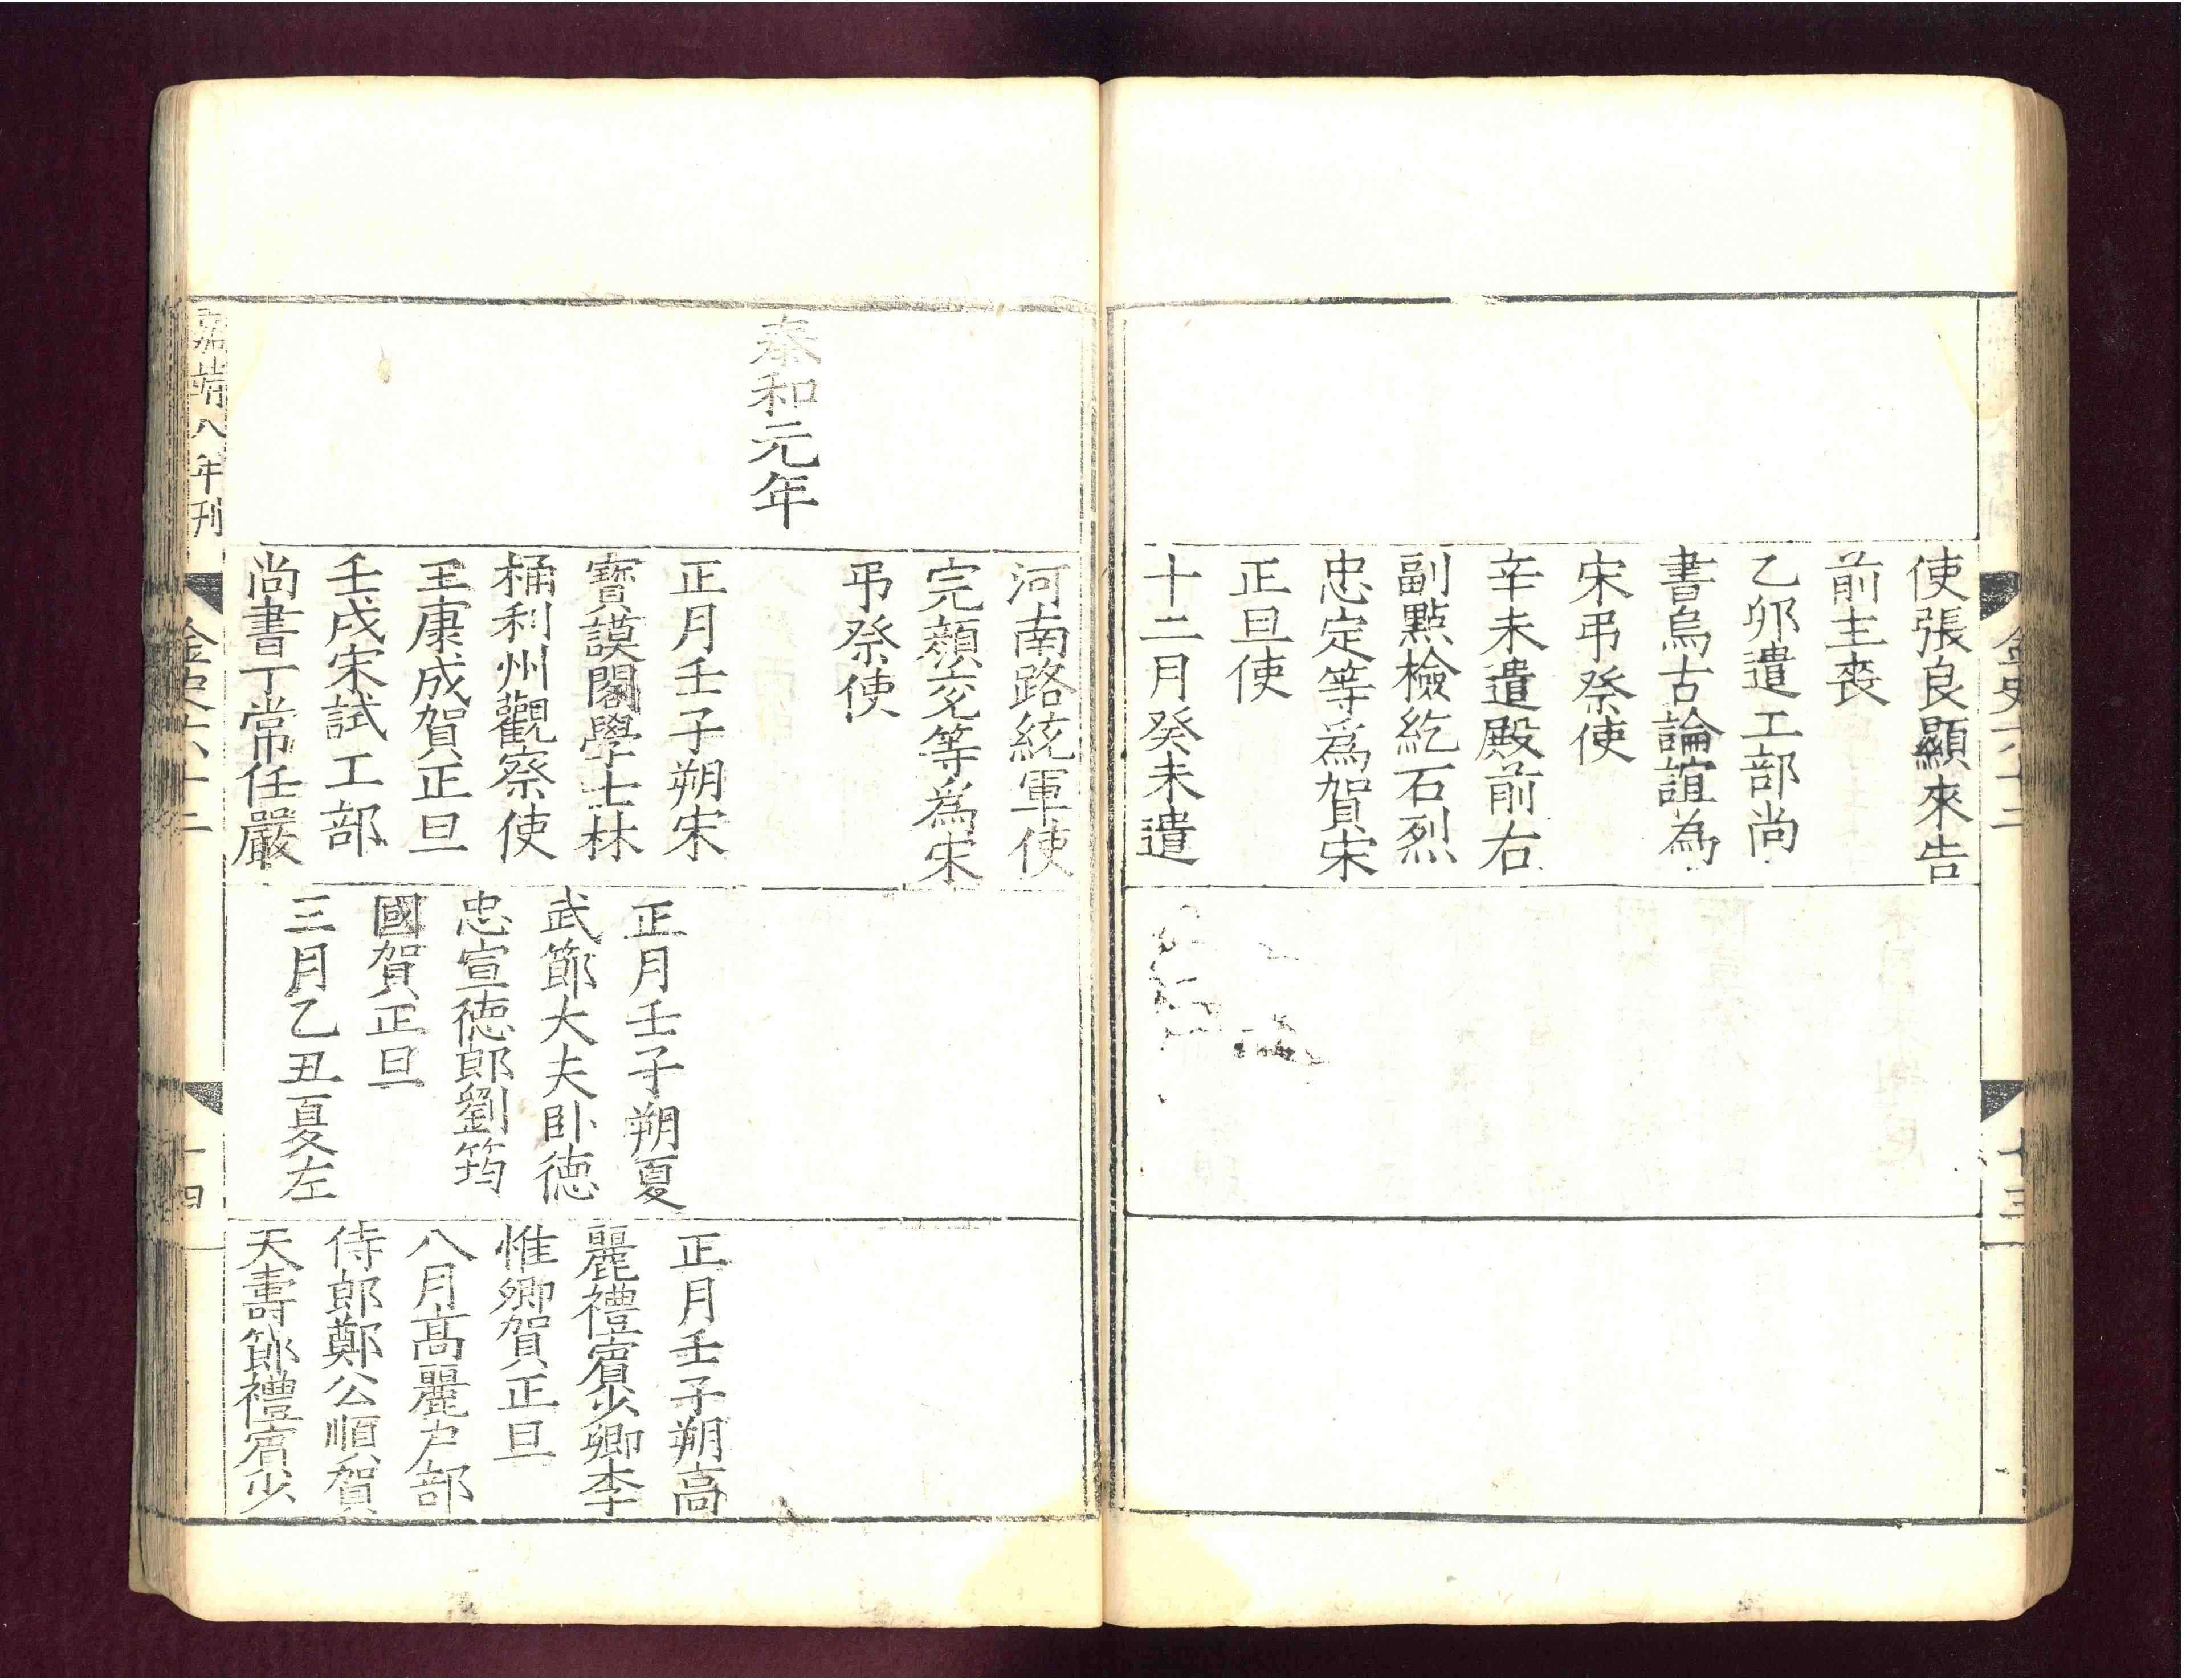 使張良顯來告
前主喪
乙卯遣工部尚
書烏古論誼為
宋弔祭使
辛未遣殿前右
副點檢紇石烈
忠定等爲賀宋
正旦使
十二月癸未遣
河南路統軍使
完顏充等爲宋
弔祭使
泰和元年
正月壬子朔宋
寶謨閣學士林
桷利州觀察使
王康成賀正旦
壬戌宋試工部
尚書丁常任嚴
正月壬子朔夏
武節大夫卧德
忠宣德郎劉筠
國賀正旦
三月乙丑夏左
正月壬子朔高
麗禮賓少卿李
惟卿賀正旦
八月高麗户部
侍郎鄭公順賀
天壽節禮賓少
嘉靖八年刊
金史六十二
十四